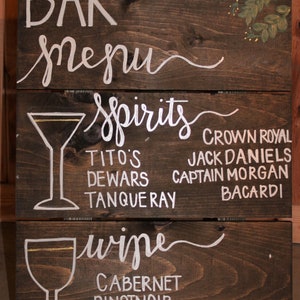 BAR
menu
Spirits
TITO'S
DEWARS
TANQUERAY
CROWN ROYAL
JACK DANIELS
CAPTAIN MORGAN
BACARDI
wine
CABERNET
PINOT NOIR